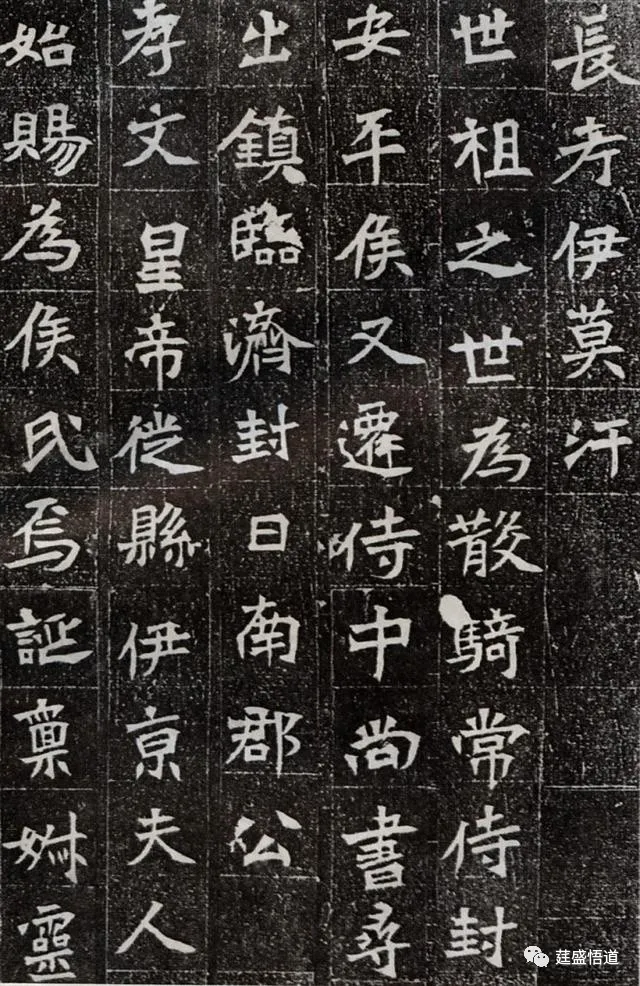 長考伊莫汗
世祖之世為散騎常侍封
安平侯又遷侍中尚書尋
出鎮臨濟封日南郡公
孝文皇帝徙縣伊京夫人
始賜為侯氏焉誕稟姊靈
莛盛悟道